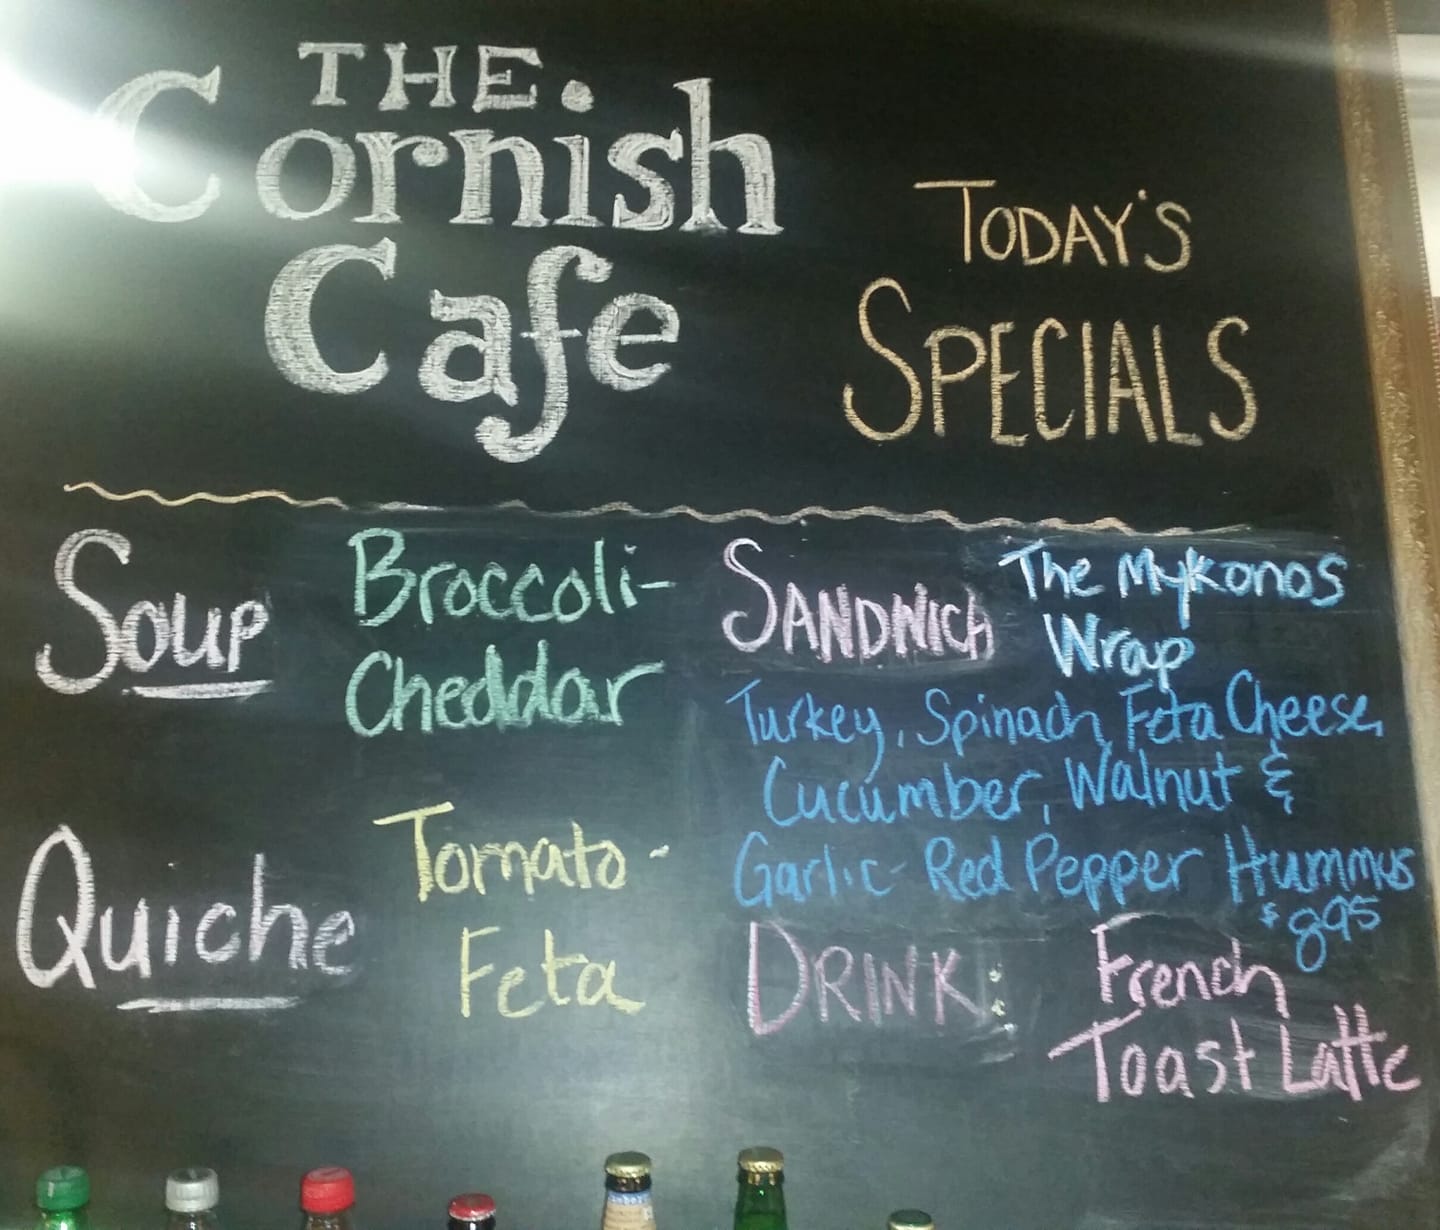 THE
Cornish
Cafe
TODAY'S
SPECIALS
Soup
Broccoli-
Cheddar
Quiche
Tomato-
Feta
SANDWICH
The Mykonos
Wrap
Turkey, Spinach, Feta Cheese,
Cucumber, Walnut &
Garlic-Red Pepper Hummus
$895
DRINK:
French
Toast Latte